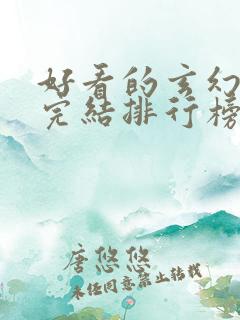 好看的玄幻
完结排行榜
唐悠悠
未经同意禁止转载